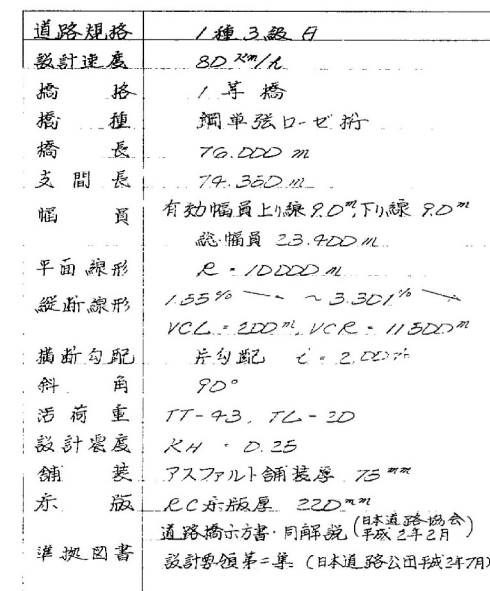 道路規格 1種3級A
設計速度 80 km/h
橋格 1等橋
橋種 鋼単弦ローゼ桁
橋長 76.000 m
支間長 74.350 m
幅員 有効幅員上り線 9.0m, 下り線 9.0m
総幅員 23.400 m
平面線形 R = 10000 m
縦断線形 1.55% ~ 3.301%
VCL = 200m, VCR = 11500m
横断勾配 片勾配 i = 2.00%
斜角 90°
活荷重 TT-43, TL-20
設計震度 KH = 0.25
舗装 アスファルト舗装厚 75mm
床版 RC床版厚 220mm
道路橋示方書・同解説 (日本道路協会 平成2年2月)
準拠図書 設計要領第二集 (日本道路公団平成2年7月)